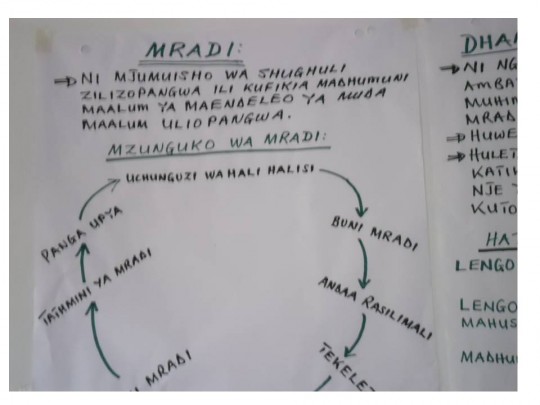 MRADI:
NI MJUMUISHO WA SHUGHULI
ZILIZOPANGWA ILI KUFIKIA MADHUMUNI
MAALUM YA MAENDELEO YA MUDA
MAALUM ULIOPANGWA.
MZUNGUKO WA MRADI:
UCHUNGUZI WA HALI HALISI
BUNI MRADI
ANDAA RASILIMALI
MRADI
TATHMINI YA MRADI
PANGA UPYA
NI
HUWE
KATIK
NJE
KUTO
LENGO
LENGO
MAHUS